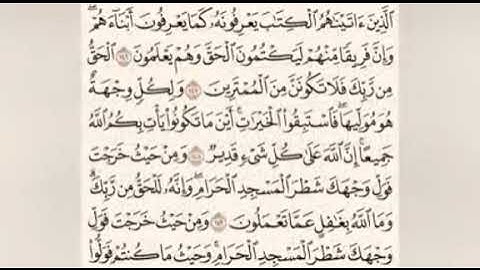 ٱلَّذِينَ ءَاتَيْنَٰهُمُ ٱلْكِتَٰبَ يَعْرِفُونَهُۥ كَمَا يَعْرِفُونَ أَبْنَآءَهُمْ ۖ
وَإِنَّ فَرِيقًا مِّنْهُمْ لَيَكْتُمُونَ ٱلْحَقَّ وَهُمْ يَعْلَمُونَ ١٤٦ ٱلْحَقُّ
مِن رَّبِّكَ فَلَا تَكُونَنَّ مِنَ ٱلْمُمْتَرِينَ ١٤٧ وَلِكُلٍّ وِجْهَةٌ
هُوَ مُوَلِّيهَا ۖ فَٱسْتَبِقُوا۟ ٱلْخَيْرَٰتِ ۚ أَيْنَ مَا تَكُونُوا۟ يَأْتِ بِكُمُ ٱللَّهُ
جَمِيعًا ۚ إِنَّ ٱللَّهَ عَلَىٰ كُلِّ شَىْءٍ قَدِيرٌ ١٤٨ وَمِنْ حَيْثُ خَرَجْتَ
فَوَلِّ وَجْهَكَ شَطْرَ ٱلْمَسْجِدِ ٱلْحَرَامِ ۖ وَإِنَّهُۥ لَلْحَقُّ مِن رَّبِّكَ ۗ
وَمَا ٱللَّهُ بِغَٰفِلٍ عَمَّا تَعْمَلُونَ ١٤٩ وَمِنْ حَيْثُ خَرَجْتَ فَوَلِّ
وَجْهَكَ شَطْرَ ٱلْمَسْجِدِ ٱلْحَرَامِ ۚ وَحَيْثُ مَا كُنتُمْ فَوَلُّوا۟